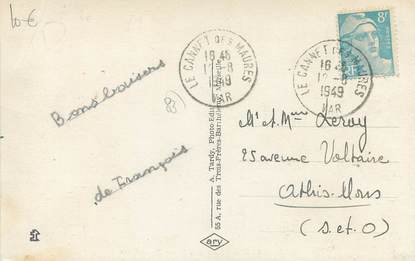 10 €
Bons baisers
de François
83
LE CANNET DES MAURES
16 45
12-8
1949
VAR
8F
LE CANNET DES MAURES
16 45
12-8
1949
VAR
A. Tardy, Photo-Edit
55 A, rue des Trois-Frères-Barthélemy, Marseille
ary
M. et Mme Leroy
25 avenue Voltaire
Athis-Mons
(S. et. O)